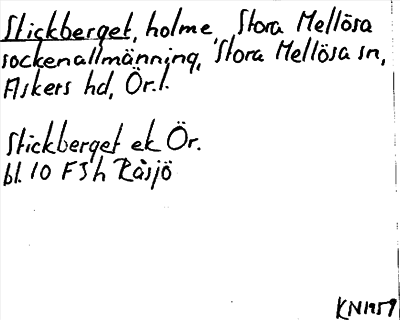 Stickberget, holme, Stora Mellösa
sockenallmänning, Stora Mellösa sn,
Askers hd, Ör.l.
Stickberget ek Ör.
bl. 10 F5h Råsjö
KN1959